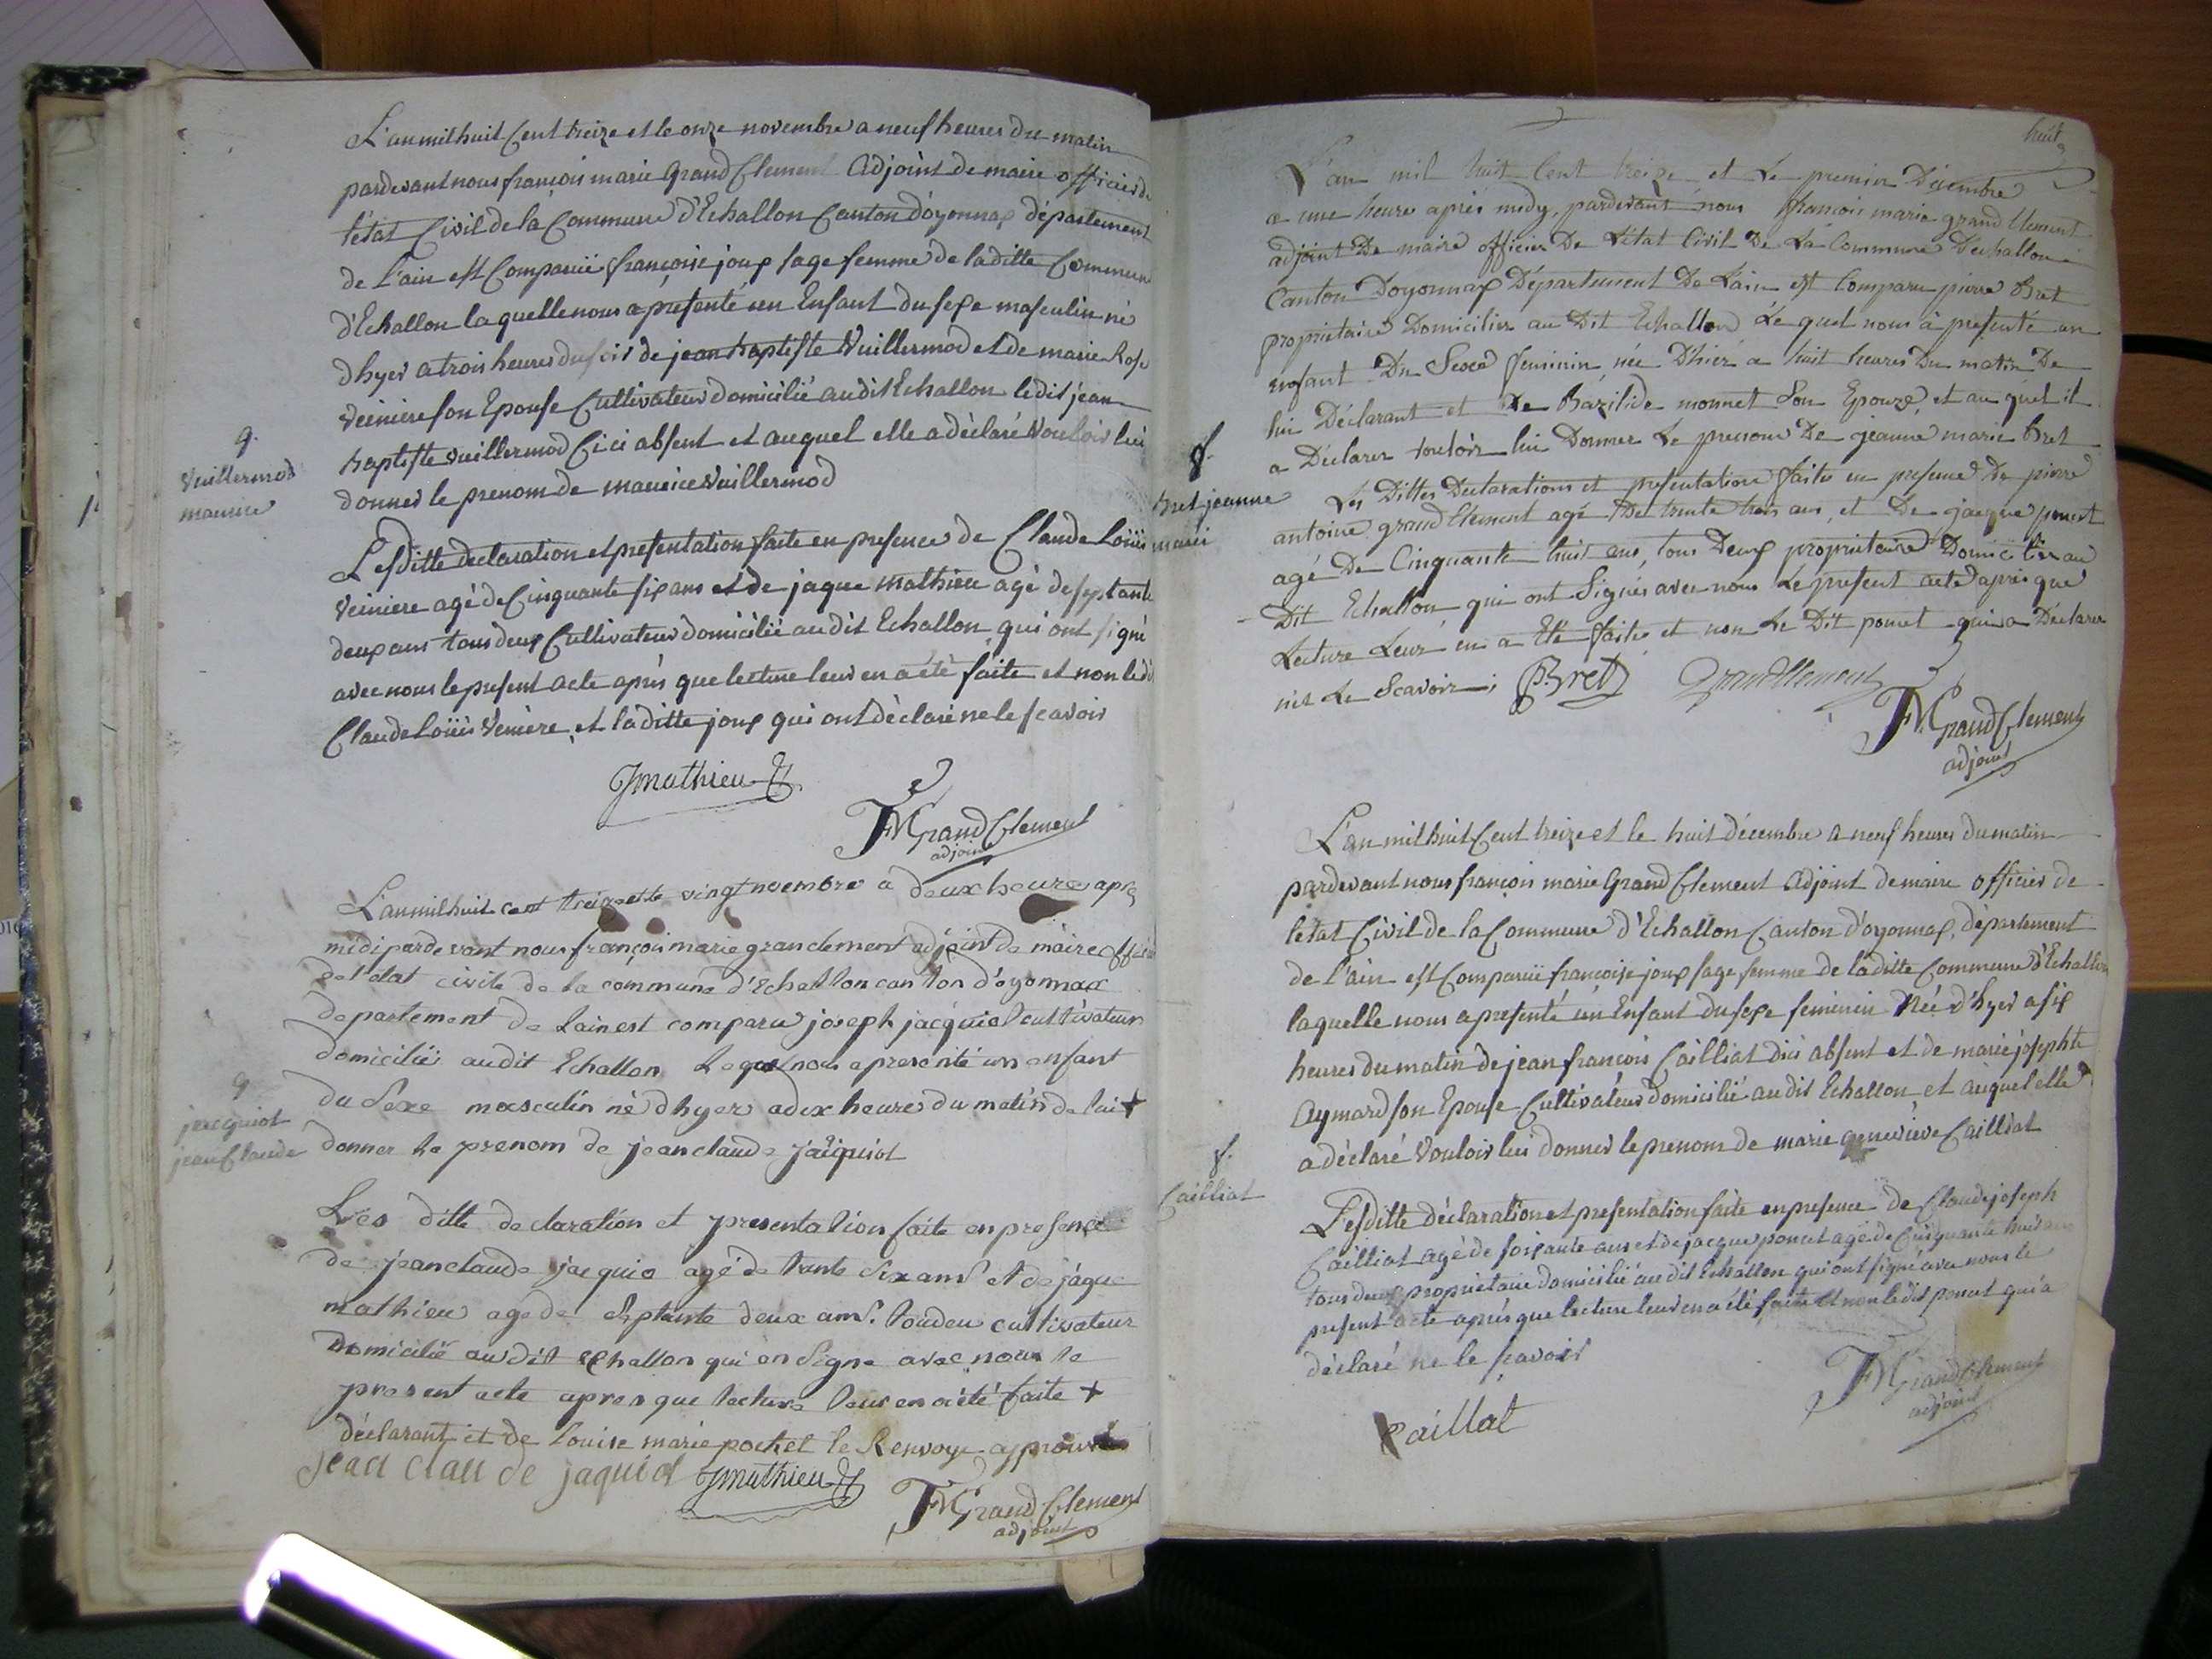 L'an mil huit Cent treize et le onze novembre a neuf heures du matin
pardevant nous françois marie Grand Clement Adjoint de maire officier de
l'état Civil de la Commune d'Echallon Canton d'oyonnax département
de l'ain est Comparüe françoise joux sage femme de laditte Commune
d'Echallon laquelle nous a présenté un Enfant du sexe masculin né
dhyer a trois heures du soir de jean baptiste Vuillermod et de marie Rose
Veiniere son Epouse Cultivateur domicilié audit Echallon ledit jean
9.
Vuillermod
maurice
baptiste vuillermod Ci ici absent et auquel elle a déclaré Vouloir lui
donner le prenom de maurice Vuillermod
Lesditte declaration et presentation faite en presence de Claude Loüis
Veiniere agé de Cinquante six ans et de jaque mathieu agé de septante
deux ans tous deux Cultivateur domicilié audit Echallon qui ont signé
avec nous le present acte après que lecture leur en a été faite et non ledi
Claude Loüis Veniere, et laditte joux qui ont déclaré ne le scavoir
Jmathieu
FM Grand Clement
adjoint
L'an mil huit cent treize et le vingt novembre a deux heure apre
midi pardevant nous françois marie granclement adjoint de maire offici
de l'etat civile de la commune d'Echallon canton d'oyonnax
departement de Lain est comparu joseph jacquiot cultivateur
domicilié audit Echallon Lequel nous a presenté un enfant
du Sexe masculin né dhyer a dix heures du matin de lui +
9
jacquiot
jean Claude
donner le prenom de jean claude jacquiot
Les ditte declaration et presentation faite en presence
de jean claude jacquio agé de trante six ans et de jaque
mathieu agé de septante deux ans. toudeu cultivateur
Domicilié audit Echallon qui on Signe avec nous le
present acte apres que lecture leur en a été faite +
déclarant et de Louise marie pochet le Renvoye approuvé
jean clau de jaquiot Jmathieu
FM Grand Clement
adjoint
huit
L'an mil huit Cent treize et Le premier Décembre
a une heure après midy, pardevant nous françois marie grand Clement
adjoint De maire officier De L'état Civil De La Commune D'echallon
Canton Doyonnax Département De Lain est Comparu pierre Bret
propriétaire Domicilier au Dit Echallon Le quel nous à presenté un
enfant Du Sexe feminin, née D'hier a huit heures Du matin De
lui Déclarant et De Bazilide monnet Son Epouze, et au quel il
a Déclarer vouloir lui Donner Le prenom De jeanne marie Bret
8.
Bret jeanne
marie
Les Dittes Declarations et presentation faite en presence De pierre
antoine grand Clement agé De trente trois ans, et De jacque poncet
agé De Cinquante huit ans, tous Deux propriétaire Domicilier au
Dit Echallon qui ont Signés avec nous Le present acte après que
Lecture Leur en a Eté faite et non Le Dit poncet qui a Déclarer
ne Le Scavoir; P. Bret Grand Clement
FM Grand Clement
adjoint
L'an mil huit Cent treize et le huit décembre a neuf heures du matin
pardevant nous françois marie Grand Clement Adjoint de maire officier de
létat Civil de la Commune d'Echallon Canton d'oyonnax, département
de l'ain est Comparüe françoise joux sage femme de laditte Commune d'Echallon
laquelle nous a presenté un Enfant du sexe feminin Née d'hyer a six
heures du matin de jean françois Cailliat dici absent et de marie josephte
Aymard son Epouse Cultivateur domicilié audit Echallon et auquel elle
a déclaré Vouloir lui donner le prenom de marie genevieve Cailliat
8.
Cailliat
Lesditte déclaration et presentation faite en presence de Claude joseph
Cailliat agé de soixante ans et de jacque poncet agé de Cinquante huit ans
tous deux proprietaire domicilié audit Echallon qui ont signé avec nous le
present acte après que lecture leur en a été faite et non ledit poncet qui a
déclaré ne le scavoir
Caillat
FM Grand Clement
adjoint